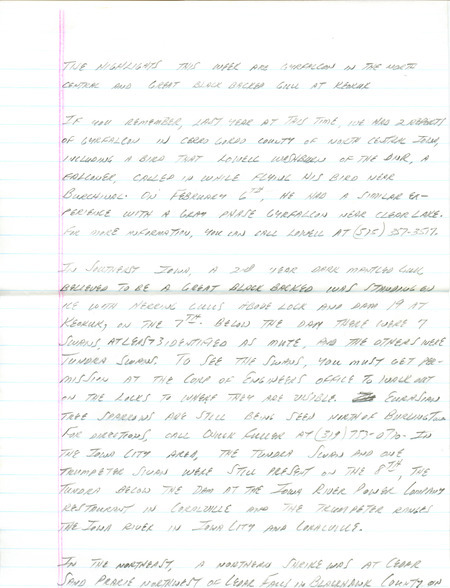 THE HIGHLIGHTS THIS WEEK ARE GYRFALCON IN THE NORTH
CENTRAL AND GREAT BLACK BACKED GULL AT KEOKUK
IF YOU REMEMBER, LAST YEAR AT THIS TIME, WE HAD 2 REPORTS
OF GYRFALCON IN CERRO GORDO COUNTY OF NORTH CENTRAL IOWA,
INCLUDING A BIRD THAT LOWELL WASHBURN OF THE DNR, A
FALCONER, CALLED IN WHILE FLYING HIS BIRD NEAR
BURCHINAL. ON FEBRUARY 6TH, HE HAD A SIMILAR EX-
PERIENCE WITH A GRAY PHASE GYRFALCON NEAR CLEAR LAKE.
FOR MORE INFORMATION, YOU CAN CALL LOWELL AT (515) 357-3517.
IN SOUTHEAST IOWA, A 2ND YEAR DARK MANTLED GULL
BELIEVED TO BE A GREAT BLACK BACKED WAS STANDING ON
ICE WITH HERRING GULLS ABOVE LOCK AND DAM 19 AT
KEOKUK, ON THE 7TH. BELOW THE DAM THERE WERE 7
SWANS, AT LEAST 3 IDENTIFIED AS MUTE, AND THE OTHERS WERE
TUNDRA SWANS. TO SEE THE SWANS, YOU MUST GET PER-
MISSION AT THE CORP OF ENGINEERS OFFICE TO WALK OUT
ON THE LOCKS TO WHERE THEY ARE VISIBLE. EURASIAN
TREE SPARROWS ARE STILL BEING SEEN NORTH OF BURLINGTON
FOR DIRECTIONS, CALL CHUCK FULLER AT (319) IN
THE IOWA CITY AREA, THE TUNDRA SWAN AND ONE
TRUMPETER SWAN WERE STILL PRESENT ON THE 8TH, THE
TUNDRA BELOW THE DAM AT THE IOWA RIVER POWER COMPANY
RESTAURANT IN CORALVILLE AND THE TRUMPETER RANGES
THE IOWA RIVER IN IOWA CITY AND CORALVILLE.
IN THE NORTHEAST, A NORTHERN SHRIKE WAS AT CEDAR
SAND PRAIRIE NORTHWEST OF CEDAR FALLS IN BLACKHAWK COUNTY ON